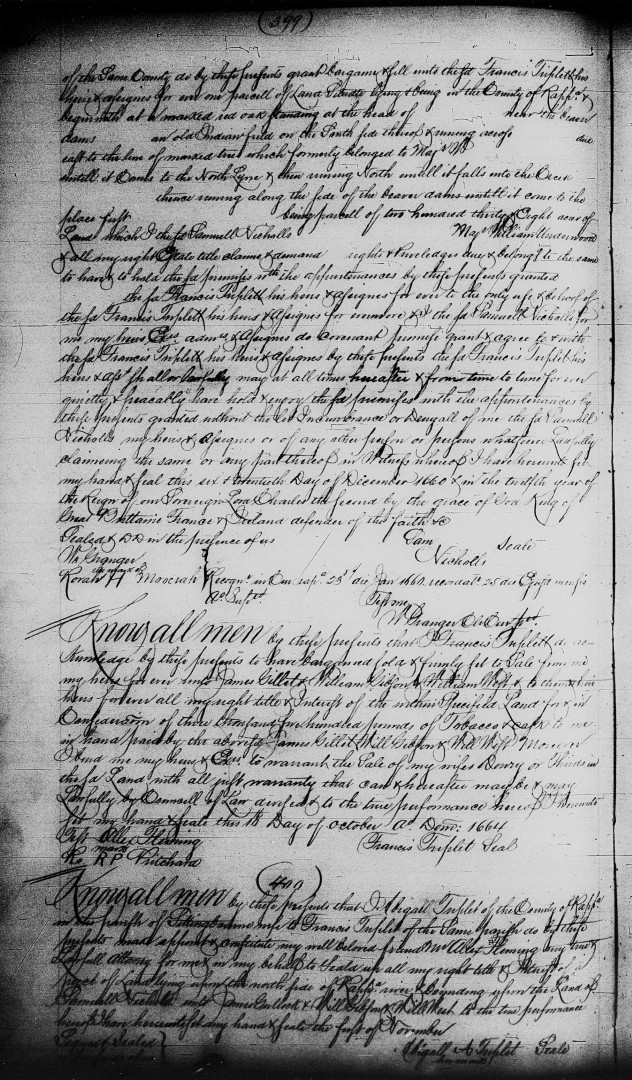 (399)
of the Same County do by these presents grant bargaine & sell unto the sd Francis Triplett his
heirs & assignes for ever one parcell of Land Situate lying & being in the County of Rappa &
beginneth at a marked red oak standing at the head of near the beaver
dams an old Indian field on the South side thereof & runing across due
east to the line of marked trees which formerly belonged to Majr
untill it Comes to the North Lyne & then runing North untill it falls into the Creek
thence runing along the side of the beaver dams untill it come to the
place first being parcell of two hundred thirty & Eight acres of
Land which I the sd Samuell Nicholls Majr William Underwood
& all my right Estate title claime & demand rights & Priviledges due & belongg to the same
to have & to hold the sd premises with the appurtenances by these presents granted
the sd Francis Triplett his heirs & assignes for ever to the only use & behoof of
the sd Francis Triplett his heirs & assignes for evermore & I the sd Samuell Nicholls for
me my heires Exrs admrs & Assignes do covenant promise grant & agree to & with
the sd Francis Triplett his heirs & assignes by these presents the sd Francis Triplet his
heirs & ass shall or Lawfully may at all times hereafter & from time to time for ever
quietly & peacably have hold & enjoy the sd premises with the appurtenances by
these presents granted without the Let Incumbrance or Denyall of me the sd Samuell
Nicholls my heirs & assignes or of any other person or persons whatsoever Lawfully
claimeing the same or any part thereof in Witness whereof I have hereunto set
my hand & seal this six & twentieth Day of December 1660 & in the twelfth year of
the Reign of our Soveraign Lord Charles the second by the grace of God King of
Great Brittaine France & Ireland defender of the faith &c
Sealed & DD in the presence of us Sam Seale
Wm Granger Nicholls
the mark of
H Moocrah Recognr in Cur 25
Test me
W Granger Cl Cur
Know all men by these presents that I Francis Triplett do ac-
knowledge by these presents to have bargained sold & firmly set to Sale from me
my heirs for ever unto James Gillet & William Gibson & William West & to them & their
heirs forever all my right title & Interest of the within Specified Land for & in
Consideration of three thousand five hundred pounds of Tobacco & cask to me
in hand paid by the abovesd James Gillet Will Gibson & Will West Moreover
I bind me my heirs & Exrs to warrant the Sale of my wifes Dowry or Thirds in
the sd Land with all just warranty that can & hereafter may be & may
Lawfully by Councell of Law devised & to the true performance hereof I hereunto
set my hand & seale this 18 Day of October Ao Dom: 1664
Test Allex Fleming Francis Triplet Seal
mark
Ro R P Pritchard
(400)
Know all men by these presents that I Abigall Triplet of the County of Rappa
in the parish of Sittingbourne wife to Francis Triplet of the Same parish do by these
presents make appoint & constitute my well beloved friend Mr Allex Fleming my true &
Lawfull Attorny for me & in my behalf to Seald all my right title & Interest of a
piece of Land lying upon the north side of Rappa river & bounding upon the Land of
Samuell Nicholls unto James & Will Gibson & Will West to the true performance
hereof I have hereunto set my hand & seale the first of November
Signed Sealed Abigall A Triplet Seale